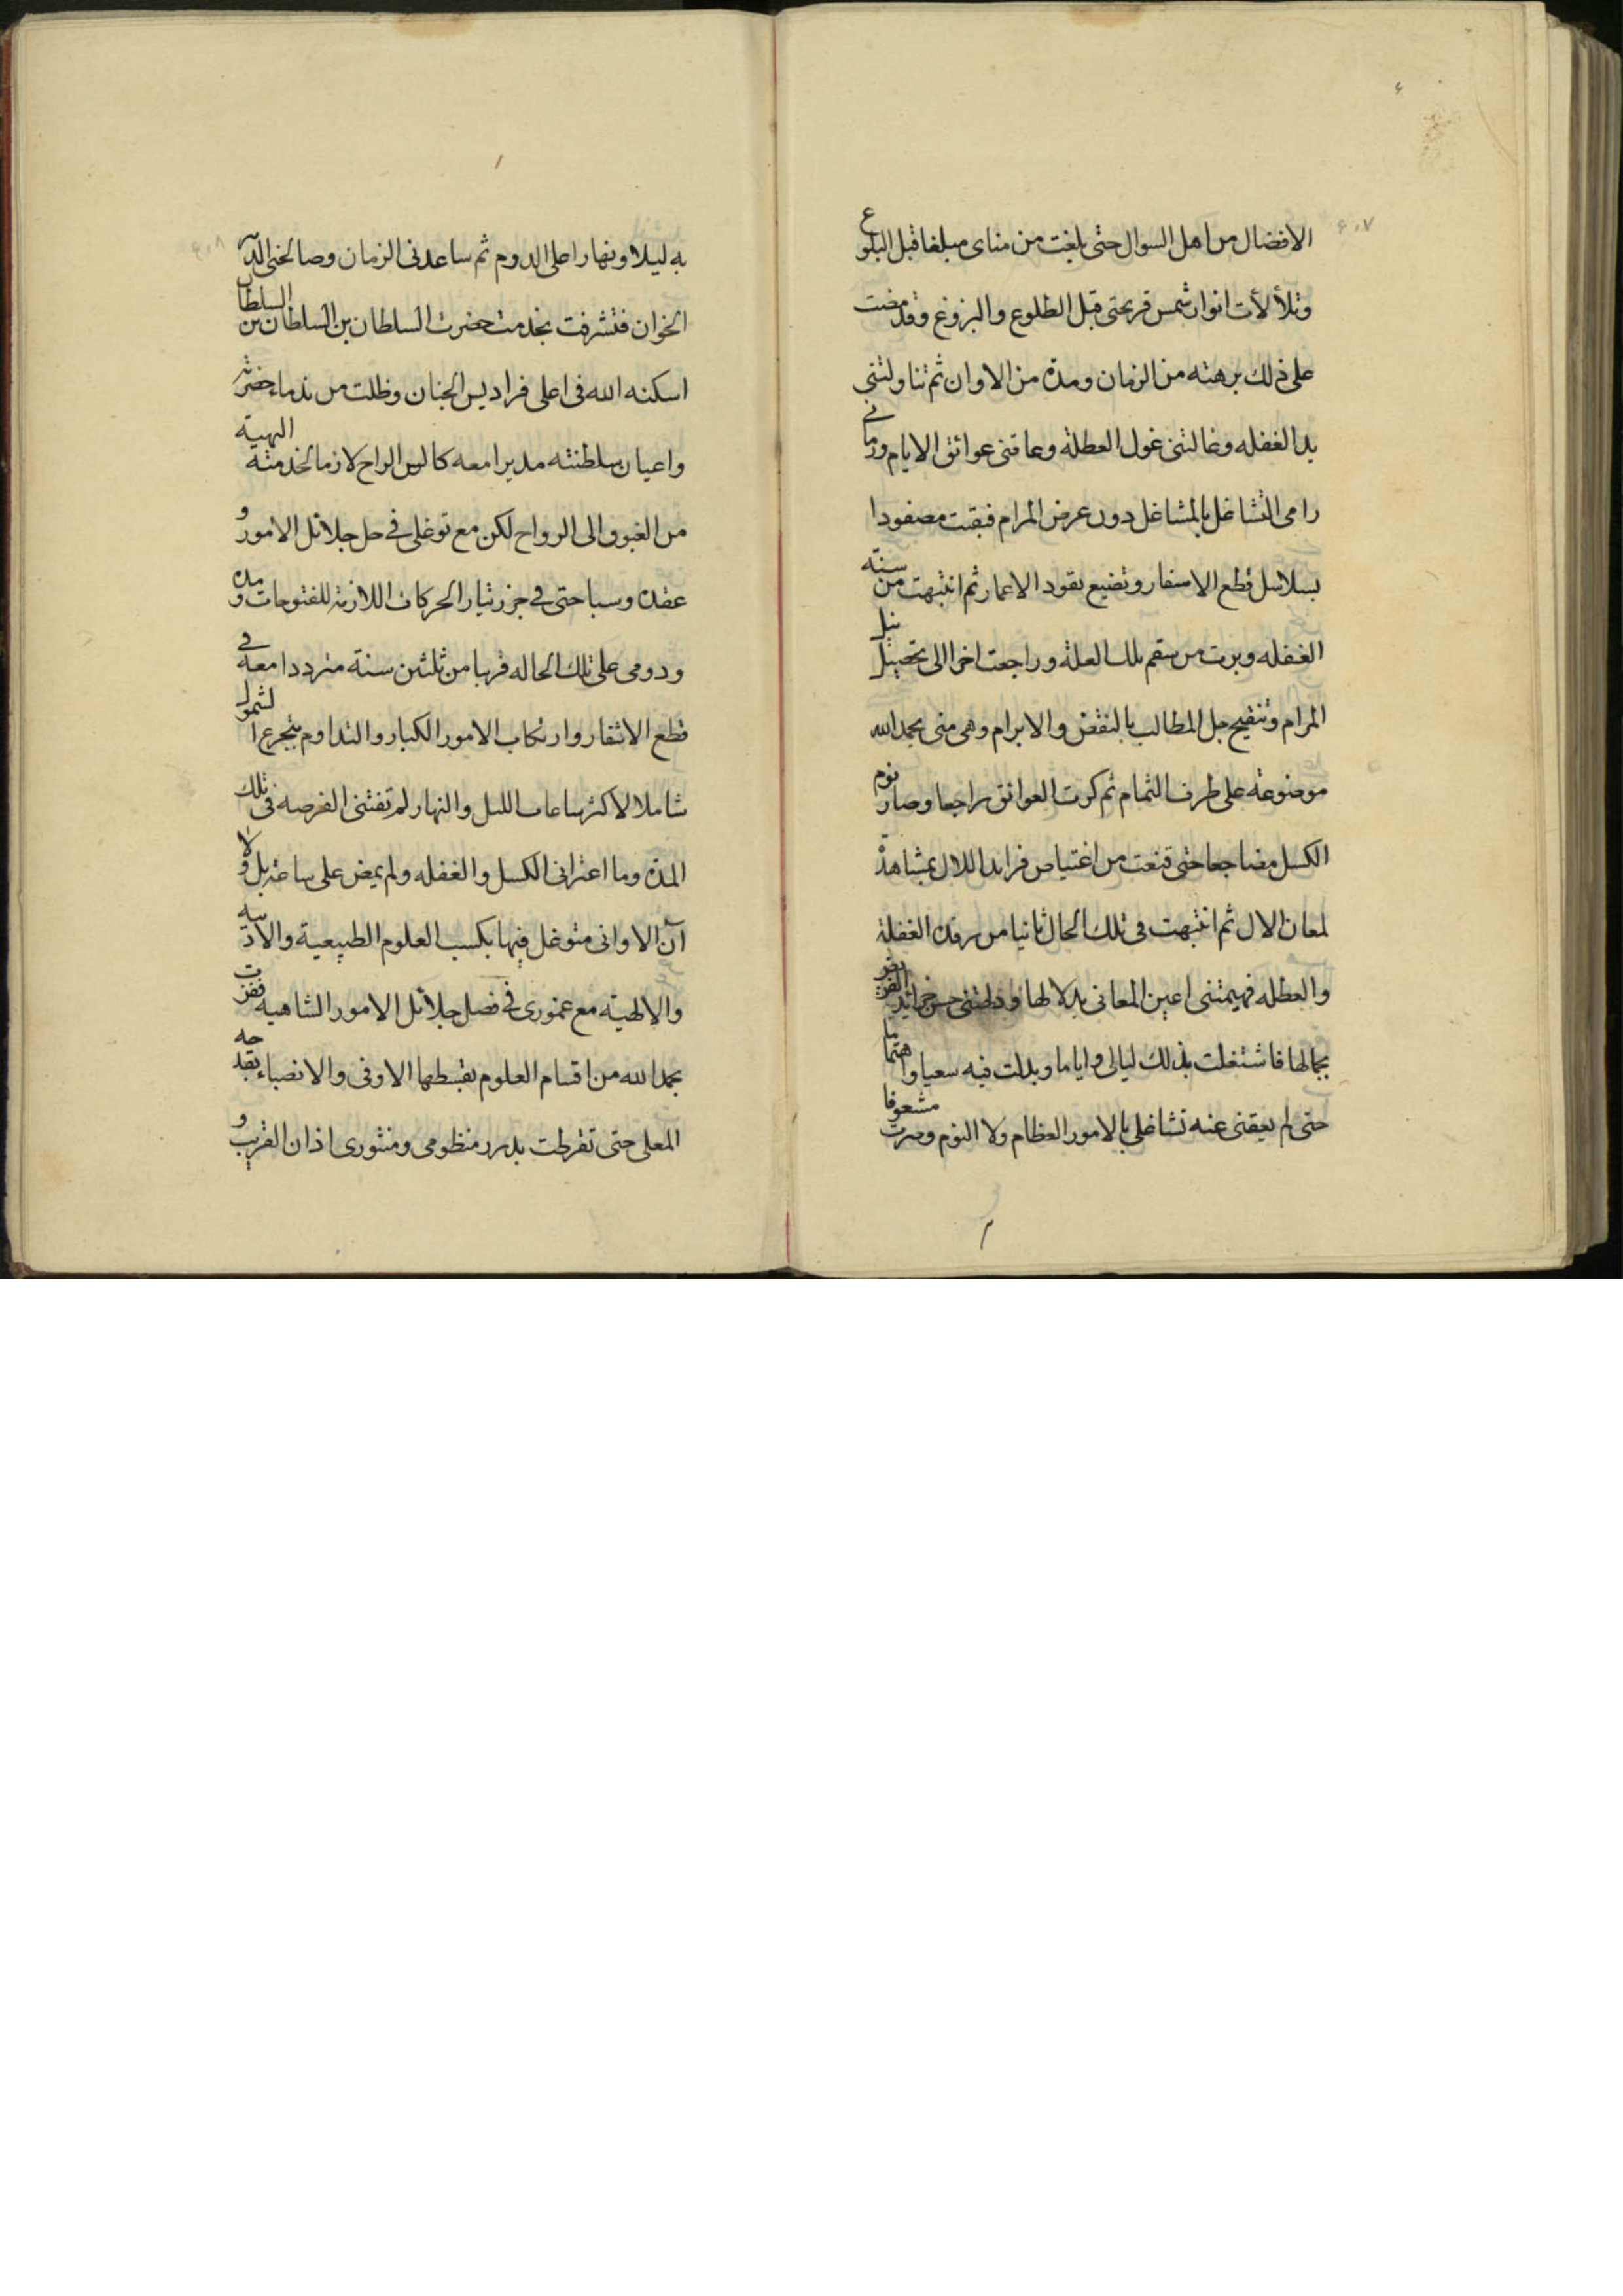 الافضال من اهل السوال حتى بلغت من مناى مبلغا قبل البلوغ
وتلألأت انوار شمس قريحتى قبل الطلوع والبزوغ وقد مضت
على ذلك برهته من الزمان ومدة من الاوان ثم تناولتنى
يد الغفله وغالتنى غول العطلة وعاقنى عوائق الايام ورمانے
رامى التشاغل بالمشاغل دون عرض المرام فبقيت مصفودا
بسلاسل قطع الاسفار وتضيع نقود الاعمار ثم انتبهت من سنته
الغفله وبرت من سقم تلك العلة وراجعت اخرا الى تحصيل نيل
المرام وتنقيح جل المطالب بالنقض والابرام وهى منى بحمد الله
موضوعة على طرف الثمام ثم كرت العوائق راجعا وصار نوم
الكسل مضاجعا حتى قنعت من اغتياص فرايد اللال بمشاهدة
لمعان الال ثم انتبهت فى تلك الحال ثانيا من رقدة الغفلة
والعطله فهيمتنى اعين المعانى بدلالها و حسن خرائد
بجمالها فاشتغلت بذلك ليالى واياما وبذلت فيه سعيا واهتماما
حتى لم يعقنى عنه تشاغلى بالامور العظام ولا النوم وصرت مشعوفا
به ليلا ونهارا على الدوم ثم ساعدنى الزمان وصالحنى الدهر
الخوان فتشرفت بخدمت حضرت السلطان بن السلطان بن السلطان
اسكنه الله فى اعلى فراديس الجنان وظلت من ندماء حضرته
واعيان سلطنته مديرا معه كالس الراح لازما لخدمته البهية
من الغبوق الى الرواح لكن مع توغلى فے حل جلائل الامور و
عقده وسباحتى فے جزر تيار الحركات اللازمة للفتوحات و مده
ودومى على تلك الحاله قربا من ثلثين سنة مترددا معه فے
قطع الاثقار وارتكاب الامور الكبار والتداوم بتجرع الشمول
شاملا لاكثر ساعات الليل والنهار لم تفتنى الفرصه فى تلك
المدة وما اعترانى الكسل والغفله ولم يمض على ساعة بل ولا
آن الا وانى متوغل فيها بكسب العلوم الطبيعية والادبيه
والالهية مع غمورى فے فصل جلائل الامور الشاهيه ففزت
بحمد الله من اقسام العلوم بقسطها الاوفى والانصباء بقدحه
المعلى حتى تقرطت بدرر منظومى ومنثورى اذان القريب و